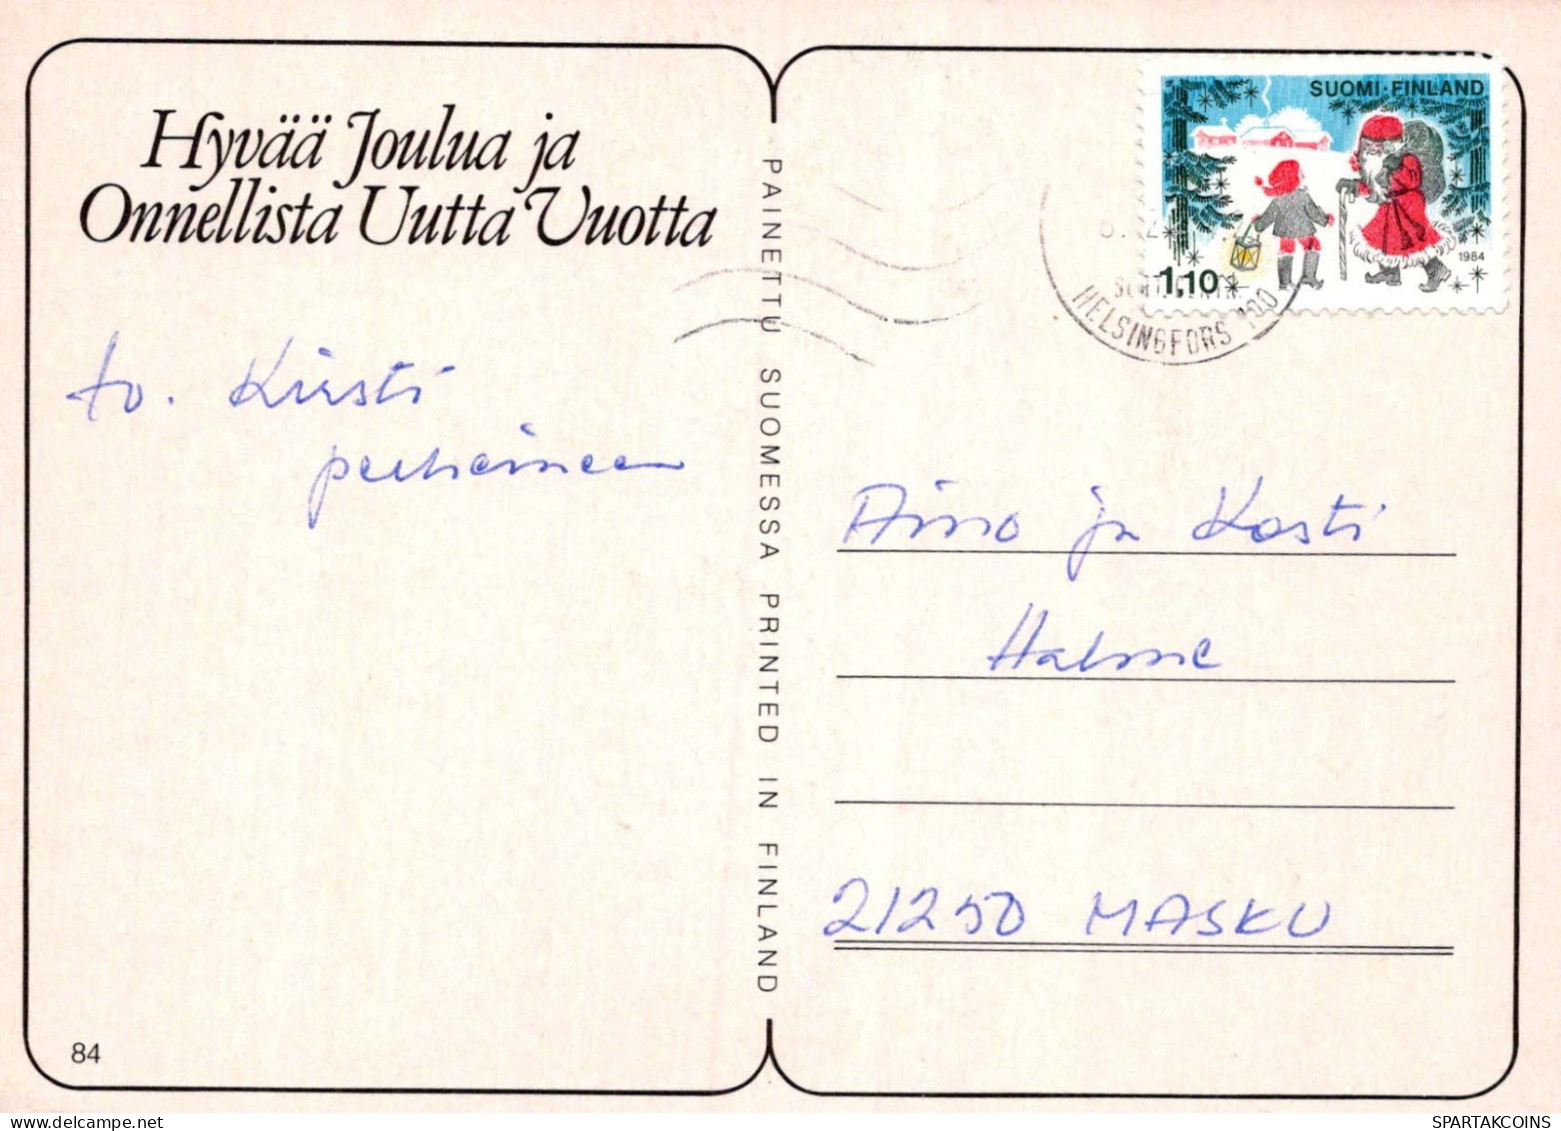 Hyvää Joulua ja
Onnellista Uutta Vuotta
to. Kirsti
perheineen
84
PAINETTU SUOMESSA PRINTED IN FINLAND
SUOMI-FINLAND
1984
1,10
HELSINGFORS 100
Aino ja Kosti
Halme
21250 MASKU
SPARTAKCOINS.COM